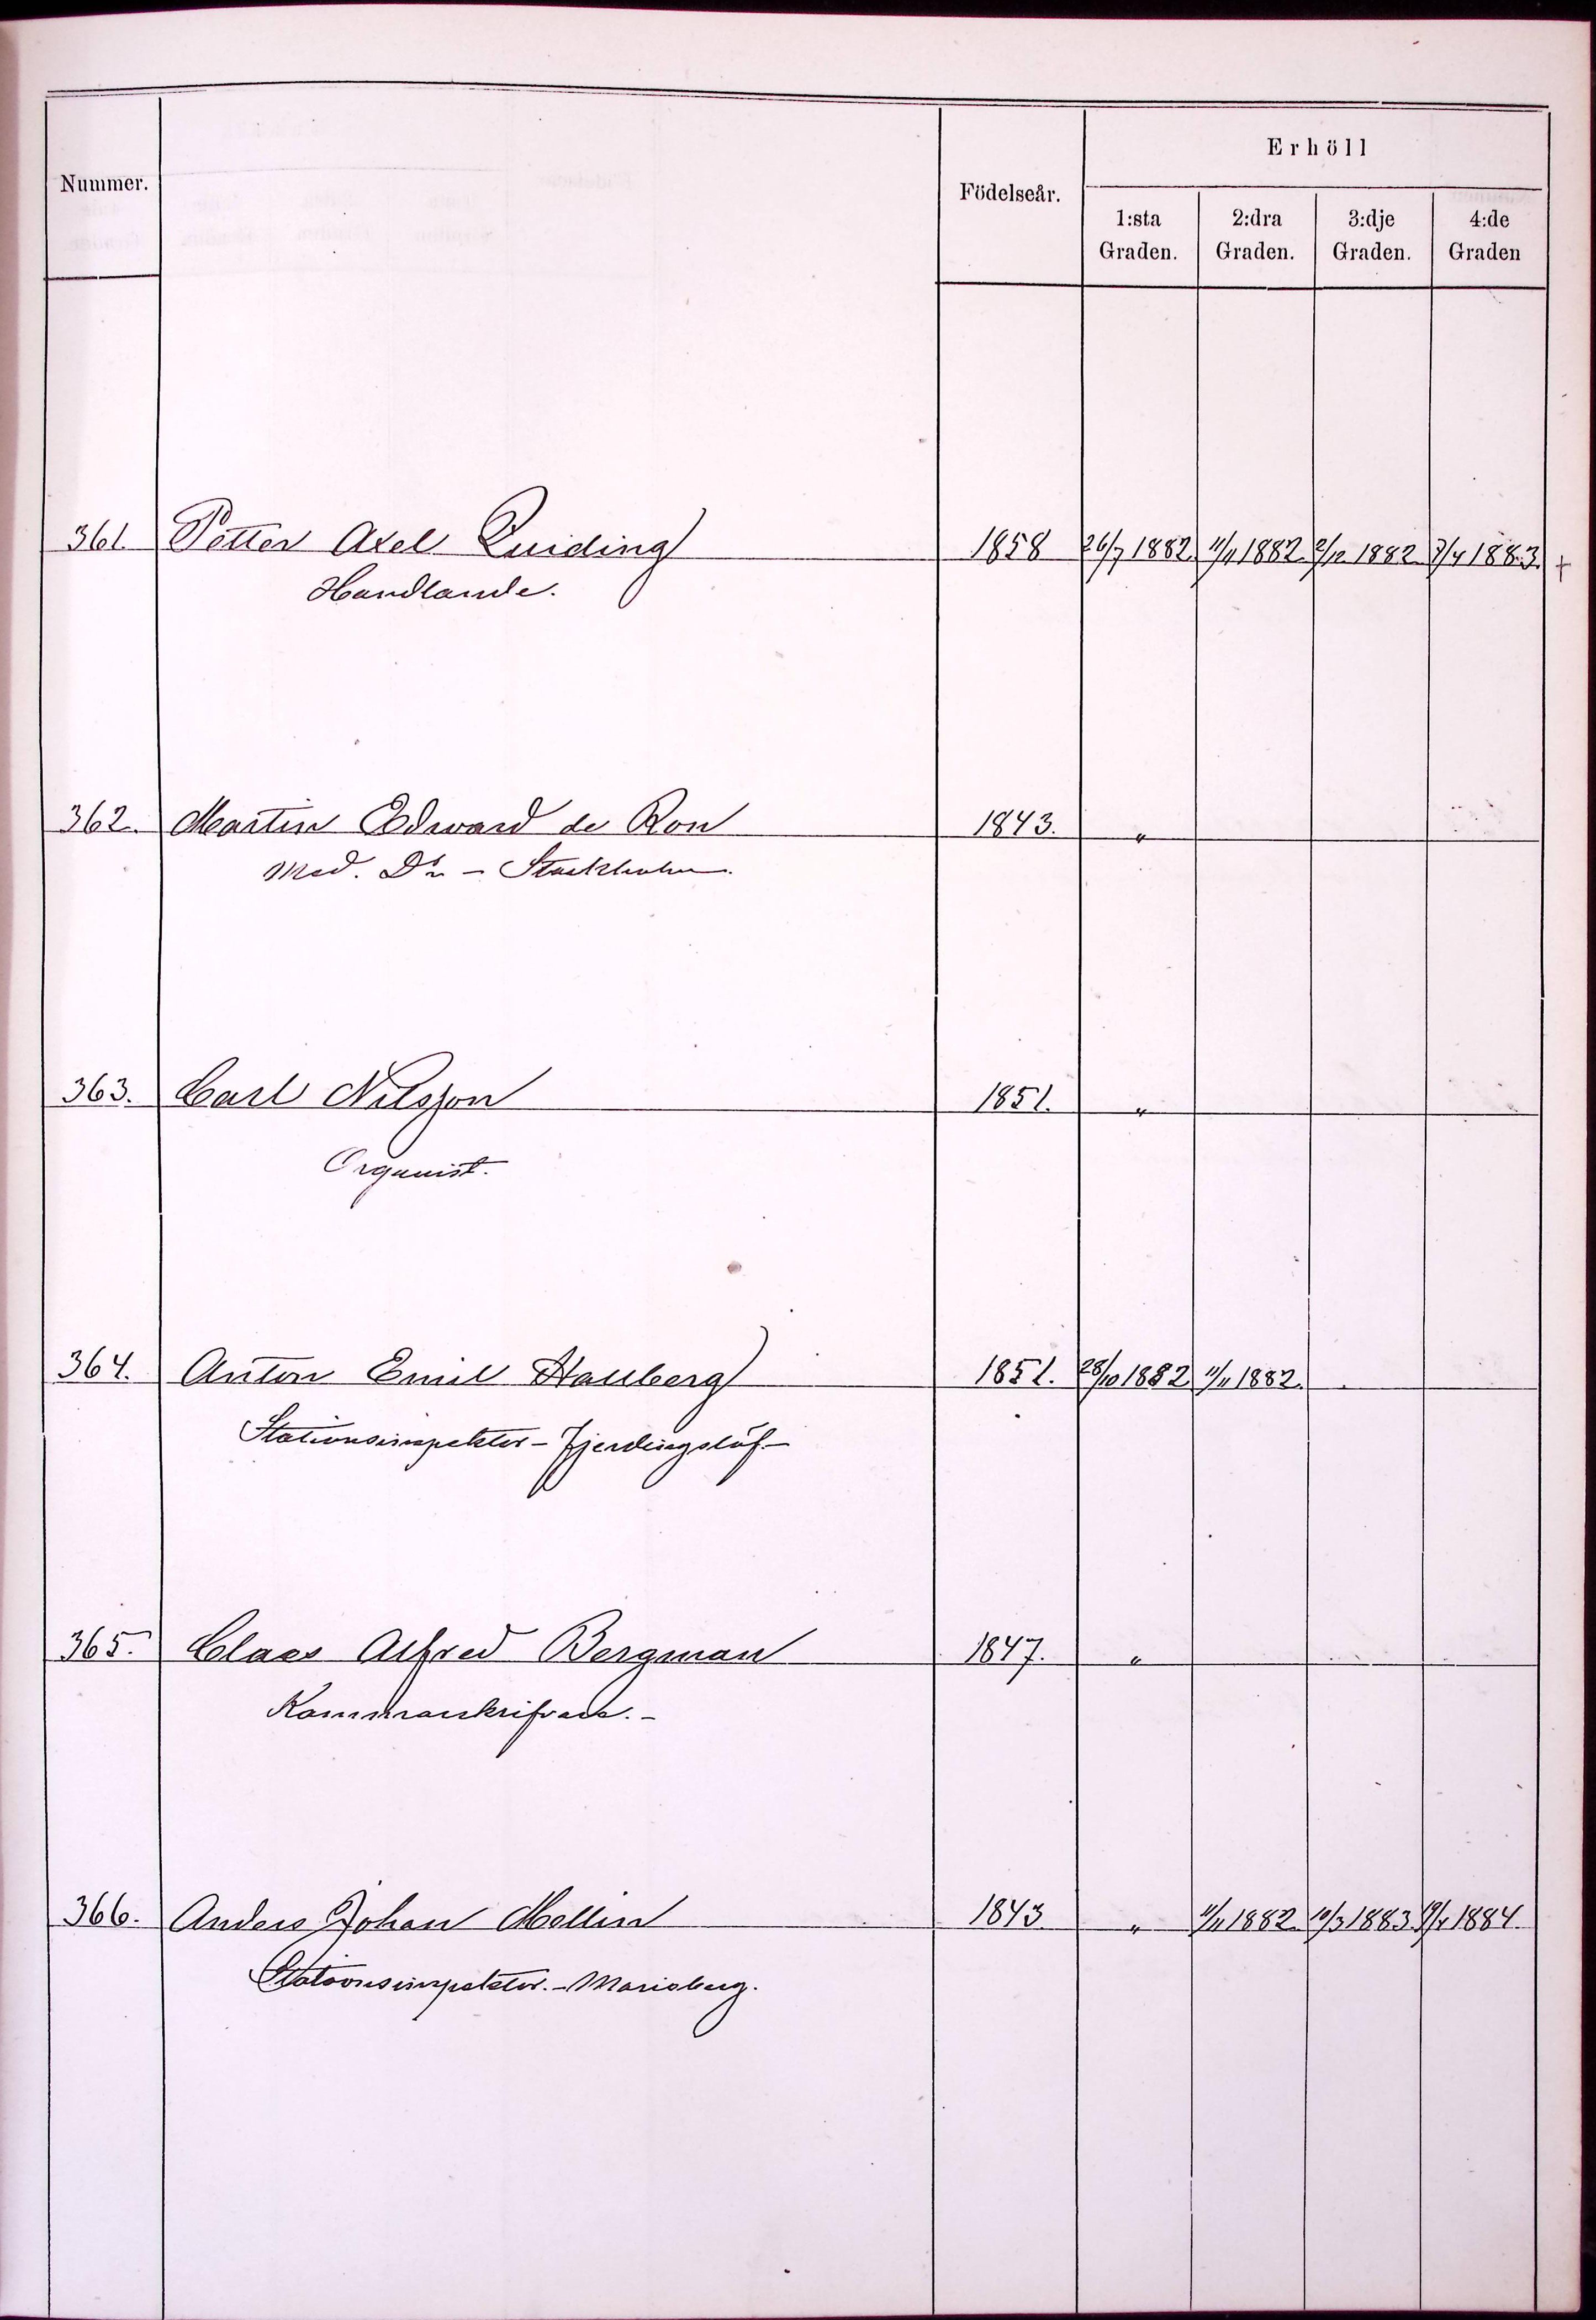 Nummer.
Födelseår.
Erhöll
1:sta Graden.
2:dra Graden.
3:dje Graden.
4:de Graden
361. Petter Axel Quiding 1858 26/7 1882 11/11 1882 2/12 1882 7/4 1883. +
Handlande.
362. Martin Edward de Ron 1843. "
Med. Dr - Stockholm.
363. Carl Nilsson 1851. "
Organist.
364. Anton Emil Hallberg 1851. 28/10 1882 11/11 1882.
Stationsinspektor - Fjerdingslöf. -
365. Claes Alfred Bergman 1847. "
Kammarskrifvare. -
366. Anders Johan Mellin 1843 " 11/11 1882. 10/3 1883. 19/4 1884.
Stationsinspektor. - Marieberg.